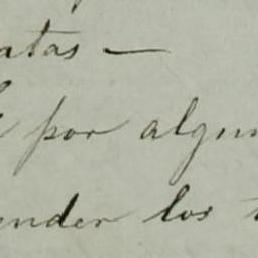 atas —
por algun
ender los